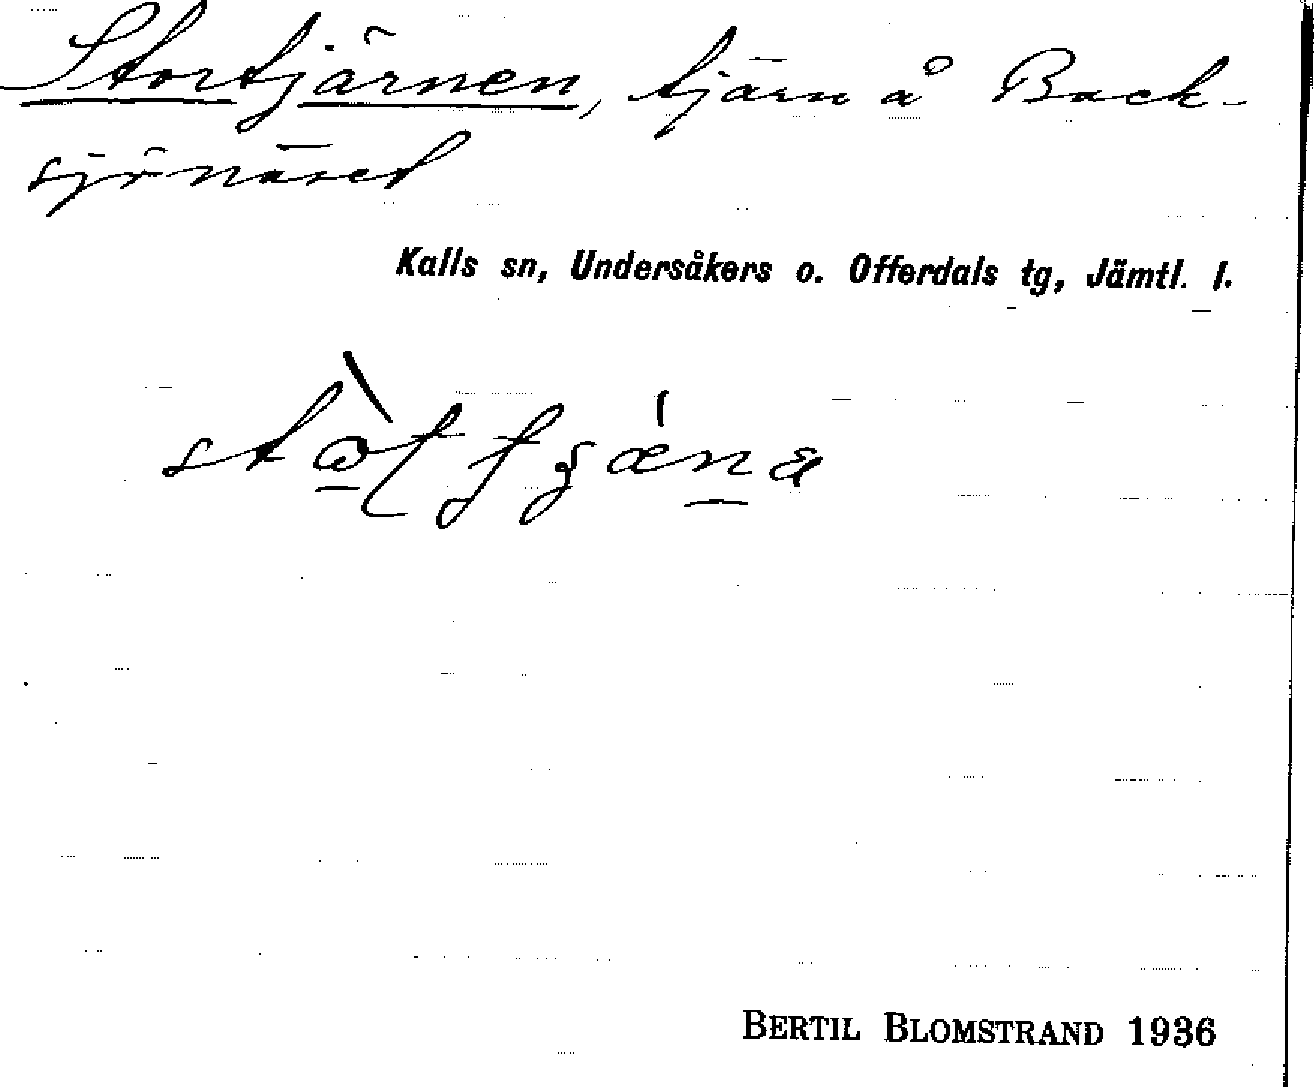 Stortjärnen, tjärn å Back-
sjönäset
Kalls sn, Undersåkers o. Offerdals tg, Jämtl. l.
BERTIL BLOMSTRAND 1936